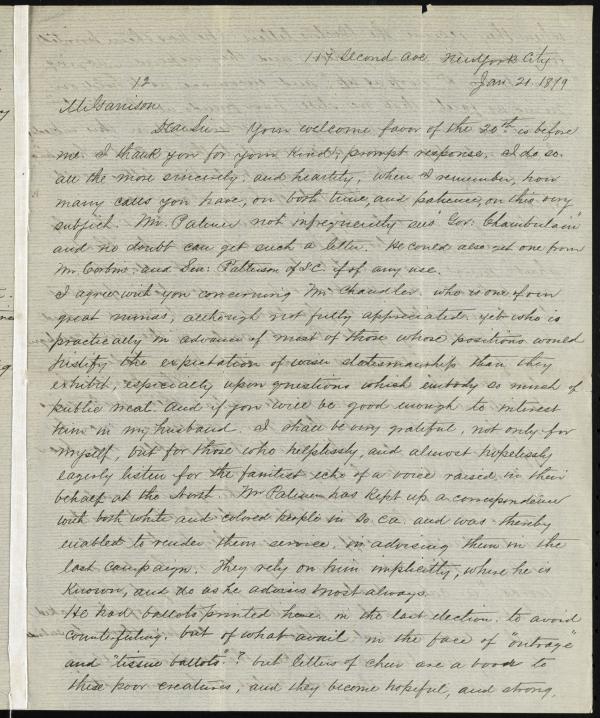 117 Second Ave New York City
Jan 21. 1879
12
Mr Garrison
Dear Sir — Your welcome favor of the 20th is before
me. I thank you for your kind, prompt response. I do so
all the more sincerely and heartily, when I remember, how
many calls you have, on both time, and patience, on this very
subject. Mr. Palmer not infrequently sees Gov: Chamberlain
and no doubt can get such a letter. He could also get one from
Mr. Corbin, and Sen: Patterson of S.C. if of any use.
I agree with you concerning Mr Chandler. who is one of our
great minds, although not fully appreciated. yet who is
practically in advance of most of those whose positions would
justify the expectation of wiser statesmanship than they
exhibit, especially upon questions which embody so much of
public weal. And if you will be good enough to interest
him in my husband. I shall be very grateful, not only for
myself, but for those who helplessly, and almost hopelessly
eagerly listen for the faintest echo of a voice raised in their
behalf at the North. Mr Palmer has kept up a correspondence
with both white and colored people in So Ca. and was thereby
enabled to render them service, in advising them in the
last campaign. They rely on him implicitly, where he is
known, and do as he advises most always.
He had ballots printed here in the last election to avoid
counterfeiting. but of what avail in the face of "outrage"
and "tissue ballots"? but letters of cheer are a boon to
these poor creatures, and they become hopeful, and strong,